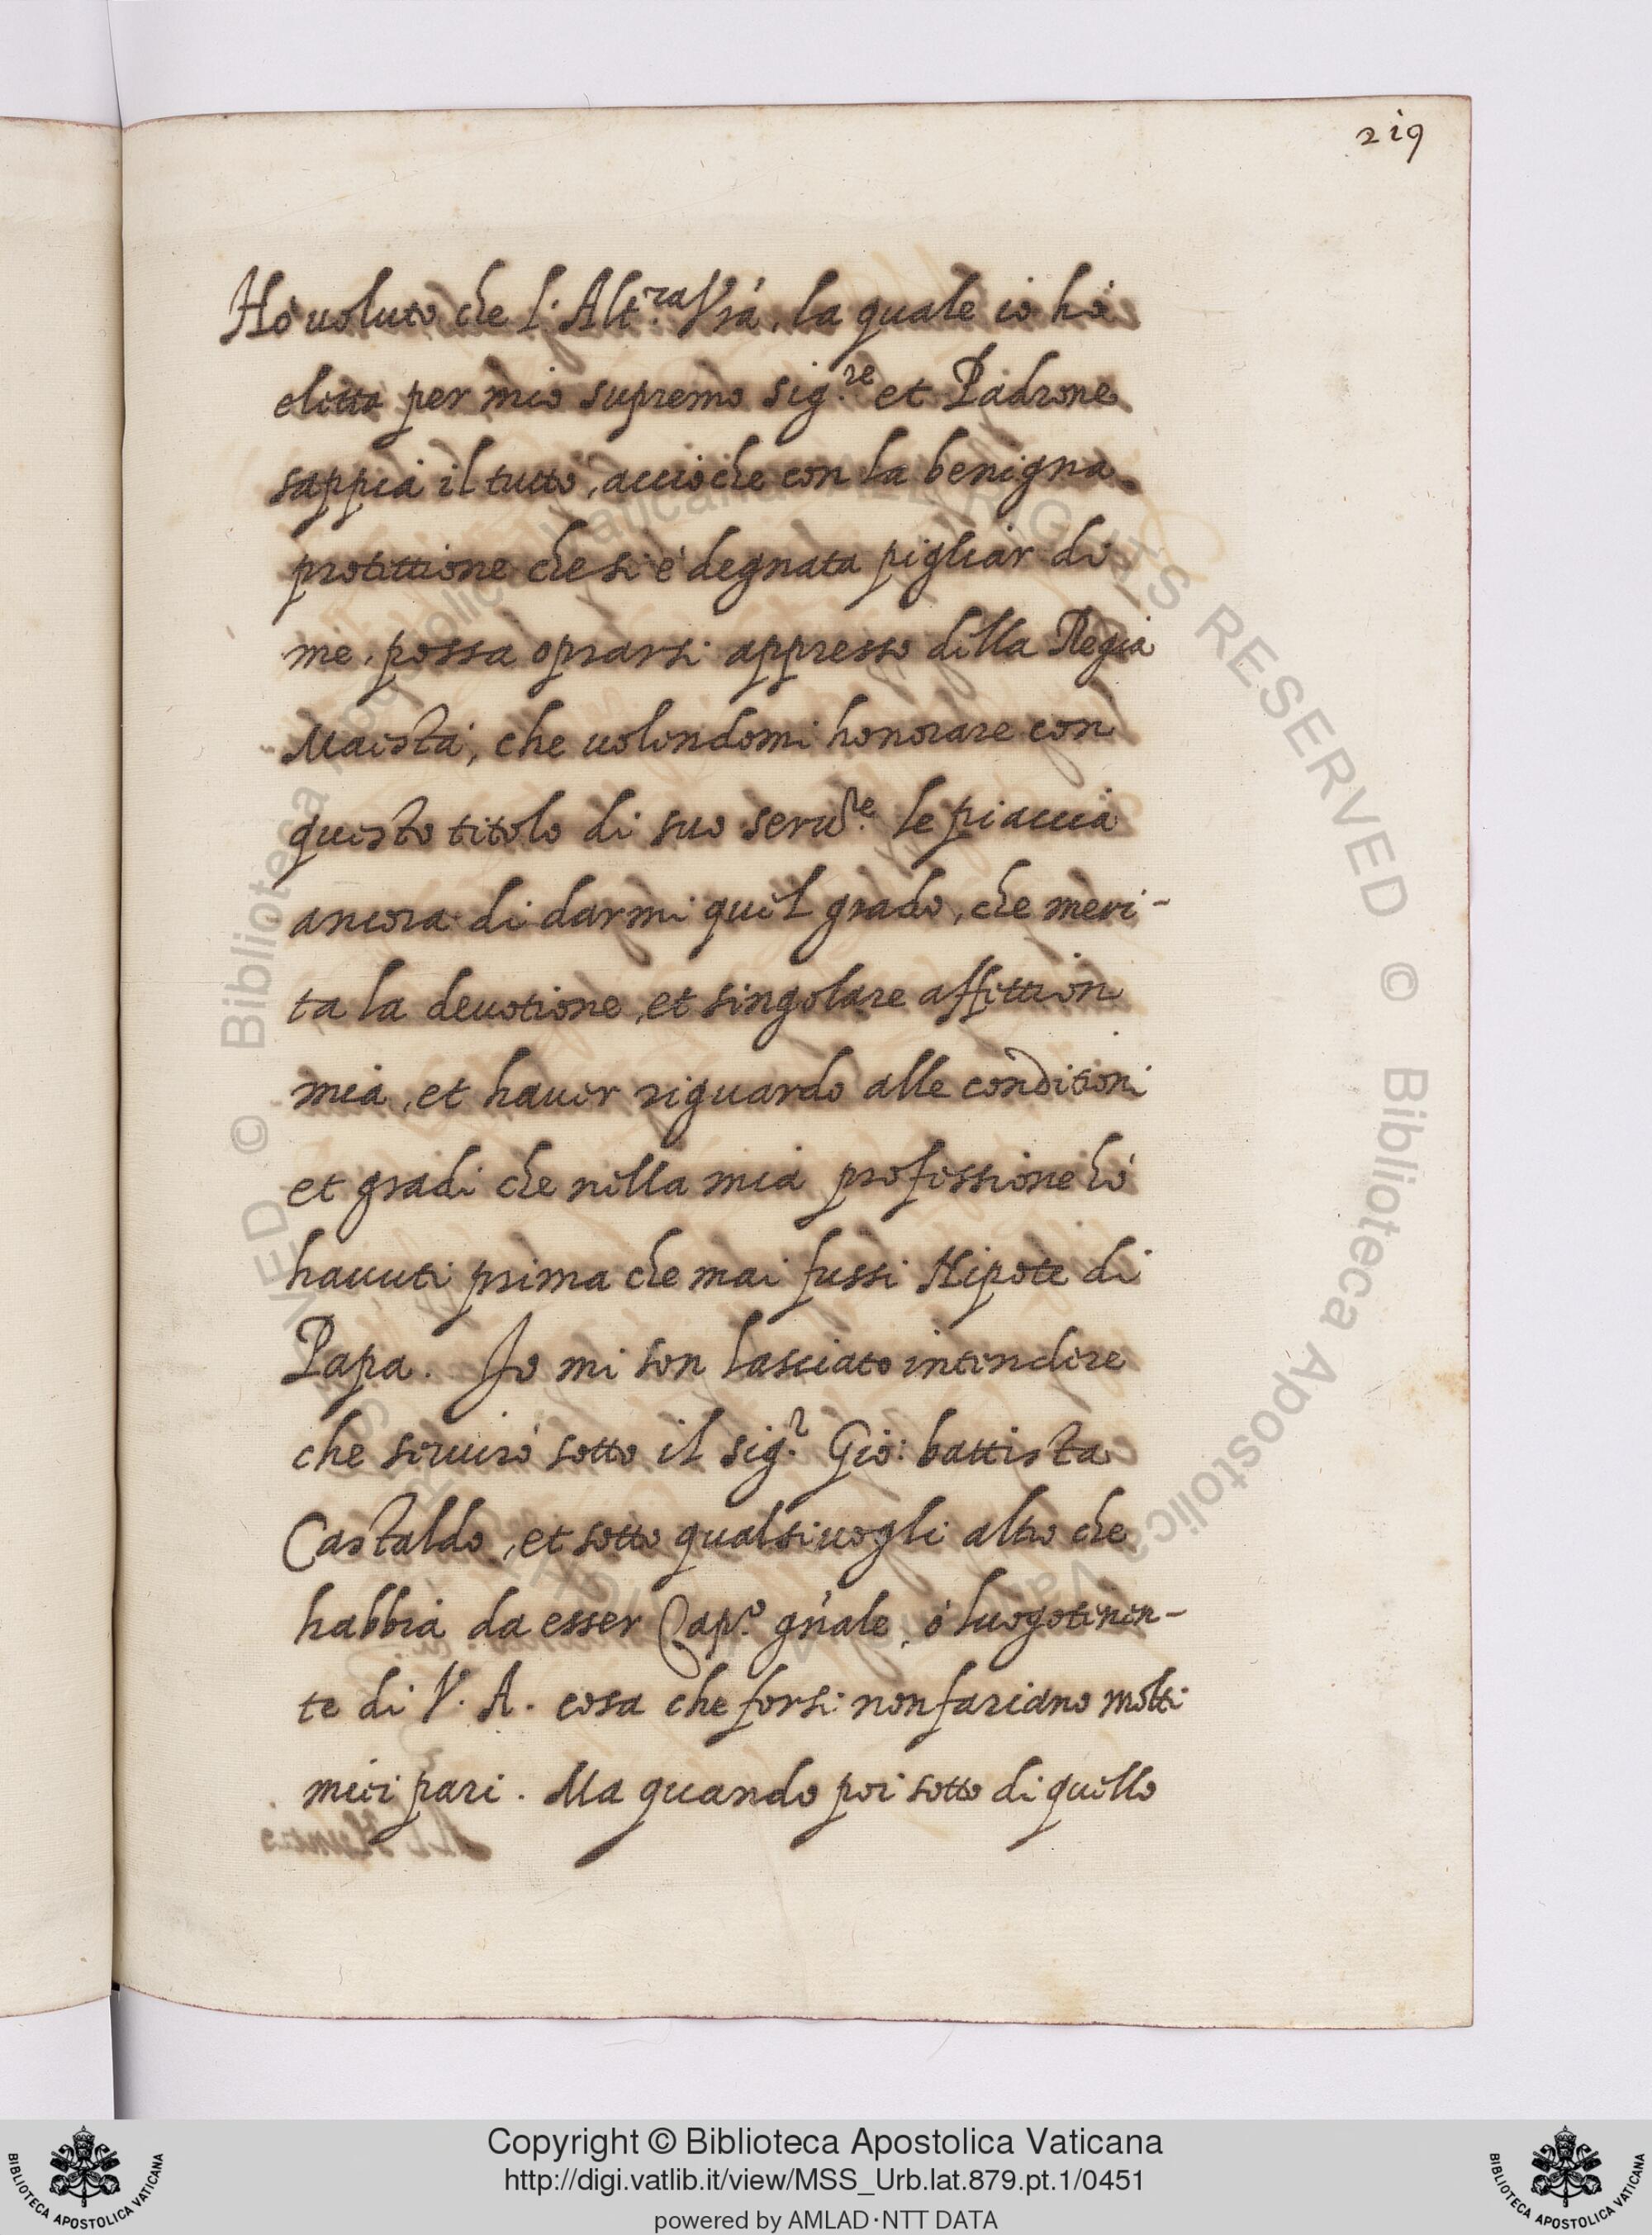 219
Hò uoluto che l'Alt.ra Vrã, la quale io hò
eletta per mio supremo sig.re et Padrone
sappia il tutto, accioche con la benigna
protettione che si è degnata pigliar di
me, possa oprarsi appresso della Regia
Maestà, che uolendomi honorare con
questo titolo di suo seru.re le piaccia
ancora di darmi quel grado, che meri-
ta la deuotione, et singolare affettion
mia, et hauer riguardo alle conditioni
et gradi che nella mia professione hò
hauuti prima che mai fussi Nipote di
Papa. Io mi son lasciato intendere
che seruirò sotto il sig.r Gio: battista
Castaldo, et sotto qualsiuogli altro che
habbia da esser Cap.o gñale, ò luogotenen-
te di V. A. cosa che forsi non fariano molti
miei pari. Ma quando poi sotto di quello
© Biblioteca Apostolica Vaticana ALL RIGHTS RESERVED © Biblioteca Apostolica
Copyright © Biblioteca Apostolica Vaticana
http://digi.vatlib.it/view/MSS_Urb.lat.879.pt.1/0451
powered by AMLAD·NTT DATA
BIBLIOTECA APOSTOLICA VATICANA
BIBLIOTECA APOSTOLICA VATICANA